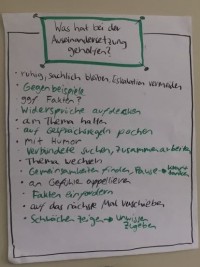 Was hat bei der
Auseinandersetzung
geholfen?
• ruhig, sachlich bleiben, Eskalation vermeiden
• Gegenbeispiele
ggf Fakten?
Widersprüche aufdecken
• am Thema halten
• auf Gesprächsregeln pochen
• mit Humor
Verbündete suchen, zusammenarbeiten
• Thema wechseln
• Gemeinsamkeiten finden, Pause →
• an Gefühle appellieren
Fakten einfordern
• auf das nächste Mal verschieben
• Schwächen zeigen → Unwissen
zugeben